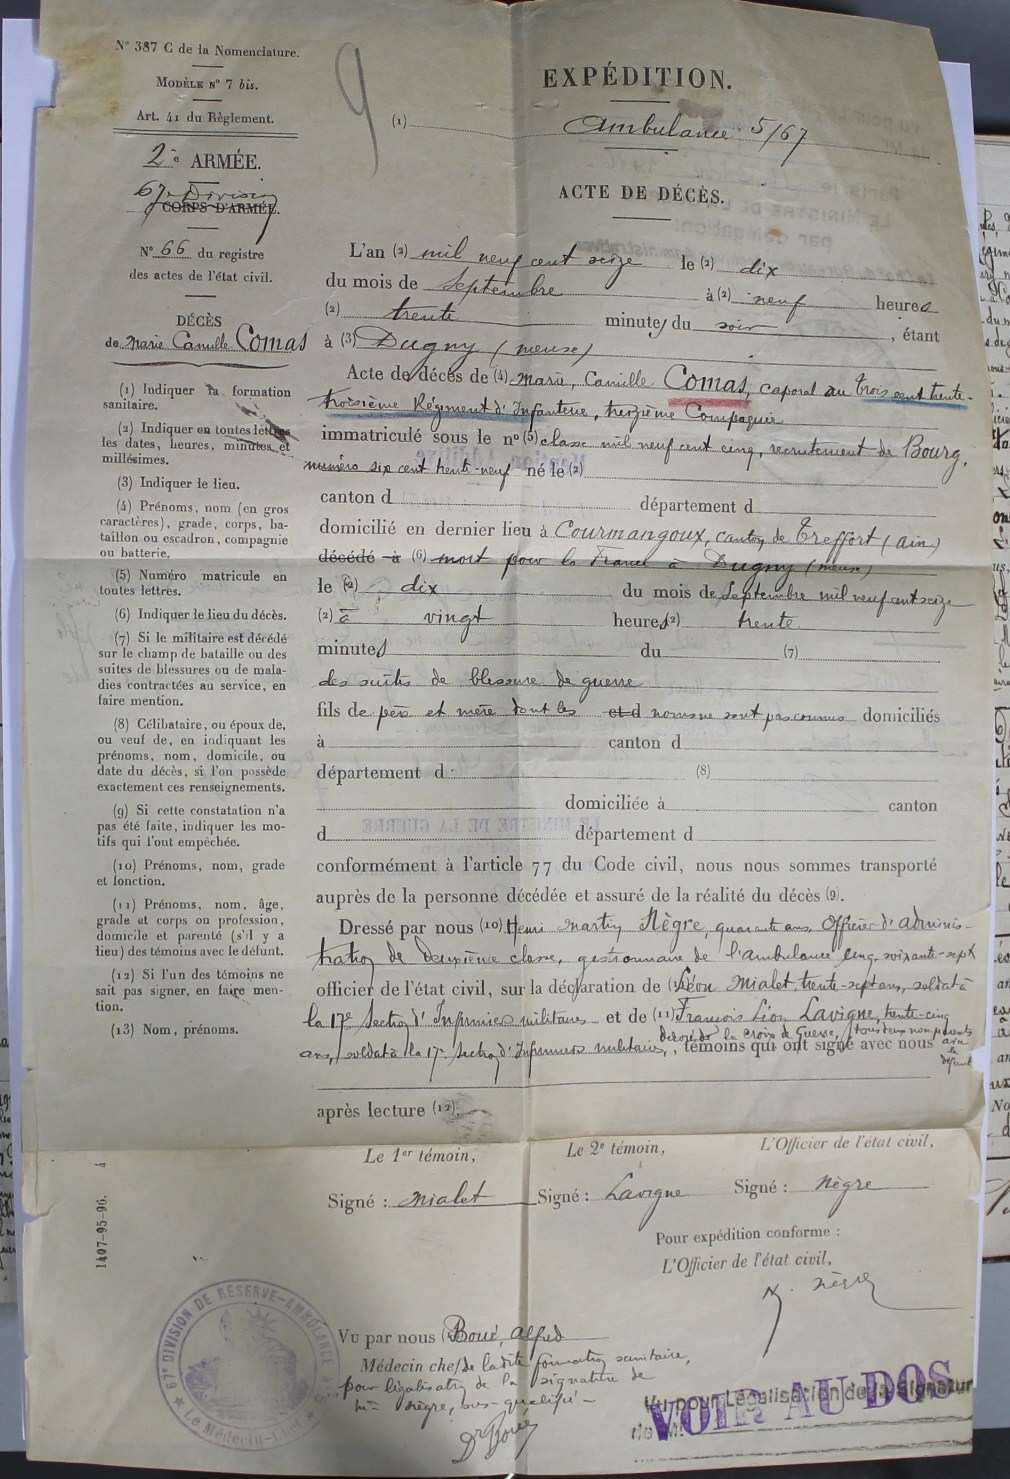 N° 387 C de la Nomenclature.
MODÈLE N° 7 bis.
Art. 41 du Règlement.
2e ARMÉE.
67e Division
CORPS D'ARMÉE.
N° 66 du registre
des actes de l'état civil.
DÉCÈS
de Marie Camille Comas
(1) Indiquer la formation
sanitaire.
(2) Indiquer en toutes lettres
les dates, heures, minutes et
millésimes.
(3) Indiquer le lieu.
(4) Prénoms, nom (en gros
caractères), grade, corps, ba-
taillon ou escadron, compagnie
ou batterie.
(5) Numéro matricule en
toutes lettres.
(6) Indiquer le lieu du décès.
(7) Si le militaire est décédé
sur le champ de bataille ou des
suites de blessures ou de mala-
dies contractées au service, en
faire mention.
(8) Célibataire, ou époux de,
ou veuf de, en indiquant les
prénoms, nom, domicile, ou
date du décès, si l'on possède
exactement ces renseignements.
(9) Si cette constatation n'a
pas été faite, indiquer les mo-
tifs qui l'ont empêchée.
(10) Prénoms, nom, grade
et fonction.
(11) Prénoms, nom, âge,
grade et corps ou profession,
domicile et parenté (s'il y a
lieu) des témoins avec le défunt.
(12) Si l'un des témoins ne
sait pas signer, en faire men-
tion.
(13) Nom, prénoms.
1407-95-96. 4
9
EXPÉDITION.
(1) Ambulance 5/67
ACTE DE DÉCÈS.
L'an (2) mil neuf cent seize le (2) dix
du mois de Septembre à (2) neuf heures
(2) trente minutes du soir, étant
à (3) Dugny (Meuse)
Acte de décès de (4) Marie, Camille Comas, caporal au trois cent trente-
troisième Régiment d'Infanterie, treizième Compagnie
immatriculé sous le n° (5) classe mil neuf cent cinq, recrutement de Bourg.
numéro six cent trente-neuf né le (2)
canton d département d
domicilié en dernier lieu à Courmangoux, canton de Treffort (Ain)
décédé à (6) mort pour la France à Dugny (Meuse)
le (2) dix du mois de Septembre mil neuf cent seize
(2) à vingt heures (2) trente
minutes du (7)
des suites de blessure de guerre
fils de père et mère dont les et d noms ne sont pas connus domiciliés
à canton d
département d (8)
domiciliée à canton
d département d
conformément à l'article 77 du Code civil, nous nous sommes transporté
auprès de la personne décédée et assuré de la réalité du décès (9).
Dressé par nous (10) Henri Martin Nègre, quarante ans, Officier d'adminis-
tration de Deuxième classe, gestionnaire de l'ambulance cinq soixante-sept
officier de l'état civil, sur la déclaration de (11) Léon Mialet, trente-sept ans, soldat à
la 17e Section d'Infirmiers militaires et de (11) François Léon Lavigne, trente-cinq
décoré de la croix de Guerre, tous deux non parents
ans, soldat à la 17e Section d'Infirmiers militaires, témoins qui ont signé avec nous avec
le
défunt
après lecture (12).
Le 1er témoin, Le 2e témoin, L'Officier de l'état civil,
Signé : Mialet Signé : Lavigne Signé : Nègre
Pour expédition conforme :
L'Officier de l'état civil,
H. Nègre
Vu par nous Boué, Alfred
Médecin chef de ladite formation sanitaire,
pour légalisation de la signature de
Mr Nègre, sus-qualifié
Dr Boué
67e DIVISION DE RÉSERVE-AMBULANCE
Le Médecin-Chef
Vu pour Légalisation de la Signature
de M.
VOIR AU DOS